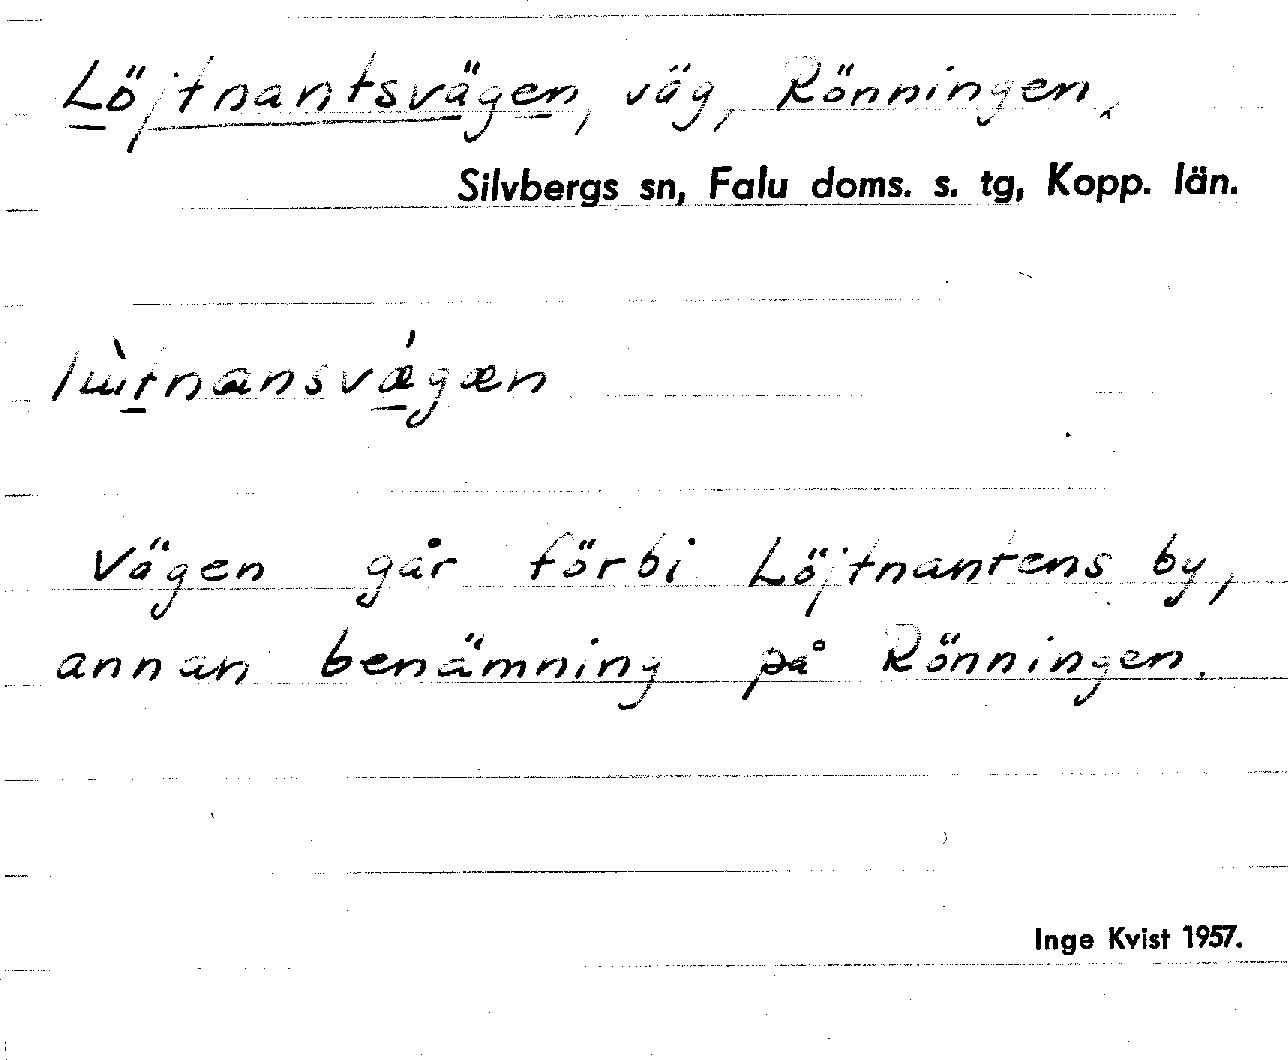 Löjtnantsvägen, väg, Rönningen,
Silvbergs sn, Falu doms. s. tg, Kopp. län.
Vägen går förbi Löjtnantens by,
annan benämning på Rönningen.
Inge Kvist 1957.